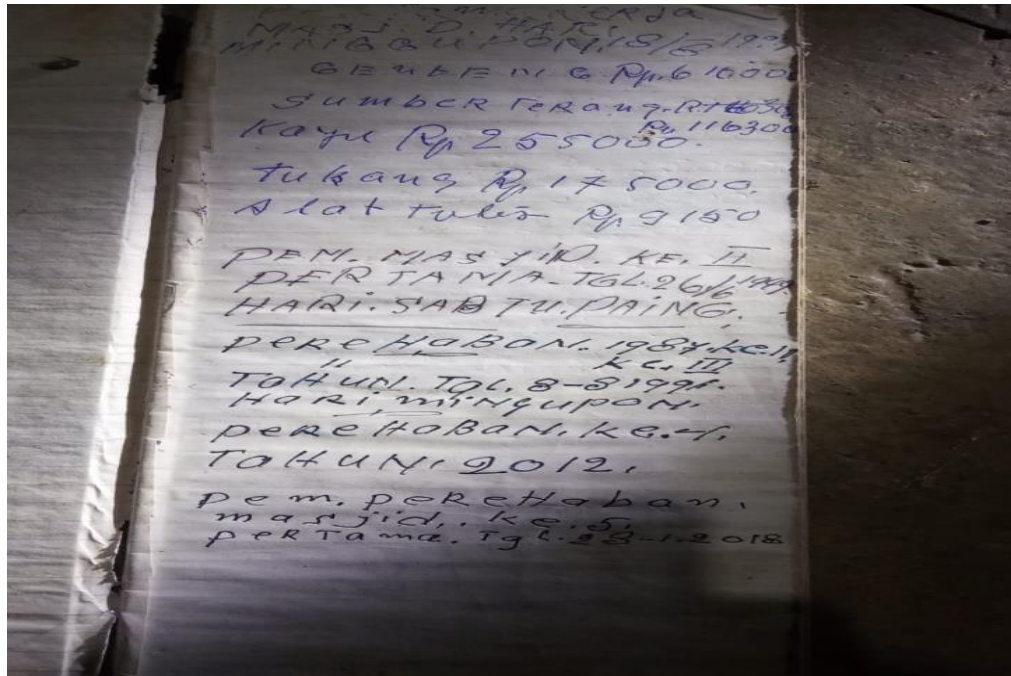 MASJID. HARI.
MINGGU PON. 18/6 199
GENTENG Rp. 610000
Sumber Terang.
Rp 116300
Kayu Rp 255000.
Tukang Rp 175000.
Alat Tulis Rp 9150
PEM. MASJID. KE. II
PERTAMA. TGL. 26/6
HARI. SABTU. PAING.
PEREHABAN. 1987. KE. II
" KE. III
TAHUN. TGL. 8-8 1991.
HARI. MINGU PON.
PEREHABAN. KE. 4.
TAHUN. 2012.
Pem. PEREHaban.
masjid. KE. 5.
PERTama. Tgl. 28-1.2018